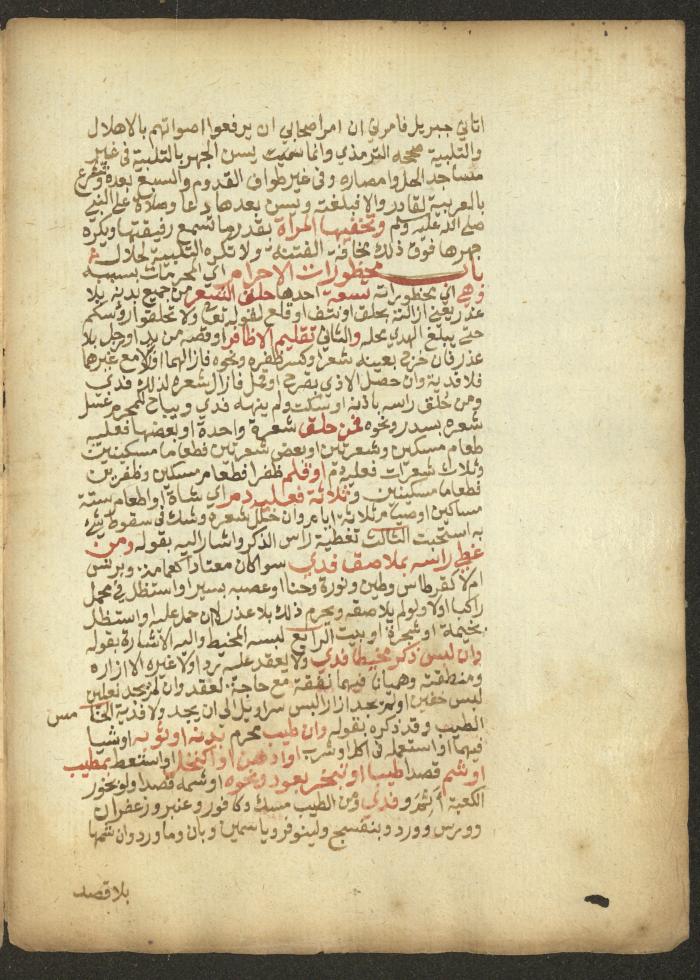 اتاني جبريل فامرني ان امر اصحابي ان يرفعوا اصواتهم بالاهلال
والتلبية صححه الترمذي وانما يسن الجهر بالتلبية في غير
مساجد الحل وامصاره وفي غير طواف القدوم والسعي بعده وتشرع
بالعربية لقادر والا فبلغته ويسن بعدها دعا وصلاة على النبي
صلى الله عليه وسلم وتخفيها المراة بقدر ما تسمع رفيقتها ويكره
جهرها فوق ذلك مخافة الفتنة ولا تكره التلبية لحلال
باب محظورات الاحرام اي المحرمات بسببه
وهي اي محظوراته تسعة احدها حلق الشعر من جميع بدنه بلا
عذر يعني ازالته بحلق او نتف او قلع لقوله تعالى ولا تحلقوا رؤسكم
حتى يبلغ الهدي محله والثاني تقليم الاظافر او قصه من يد او رجل بلا
عذر فان خرج بعينه شعر او كسر ظفره ونحوه فازالهما او زالا مع غيرها
فلا فدية وان حصل الاذى بقرح او قمل فازال شعره لذلك فدى
ومن حلق راسه باذنه او سكت ولم ينهه فدى ويباح للمحرم غسل
شعره بسدر ونحوه فمن حلق شعرة واحدة او بعضها فعليه
طعام مسكين وشعرتين او بعض شعرتين فطعام مسكينين
وثلاث شعرات فعليه دم او قلم ظفرا فطعام مسكين وظفرين
فطعام مسكينين وثلاثة فعليه دم اي شاة او اطعام ستة
مساكين او صيام ثلاثة ايام وان خلل شعره وشك في سقوط شيء
به استحبت الثالث تغطية راس الذكر واشار اليه بقوله ومن
غطى راسه بملاصق فدى سوا كان معتادا كعمامة وبرنس
ام لا كقرطاس وطين ونورة وحنا او عصبه بسير او استظل في محمل
راكبا او لا ولو لم يلاصقه ويحرم ذلك بلا عذر لا ان حمل عليه او استظل
بخيمة او شجرة او بيت الرابع لبسه المخيط واليه الاشارة بقوله
وان لبس ذكر مخيطا فدى ولا يعقد عليه ردا ولا غيره الا ازاره
ومنطقة وهميانا فيهما نفقة مع حاجة لعقد وان لم يجد نعلين
لبس خفين او لم يجد ازارا لبس سراويل الى ان يجد ولا فدية الخامس
الطيب وقد ذكره بقوله وان طيب محرم بدنه او ثوبه او شيا
فيهما او استعمله في اكل او شرب او ادهن او اكتحل او استعط بمطيب
او شم قصدا طيبا او تبخر بعود ونحوه او شمه قصدا ولو بخور
الكعبة اثم وفدى ومن الطيب مسك وكافور وعنبر وزعفران
وورس وورد وبنفسج ولينوفر وياسمين وبان وما ورد وان شمها
بلا قصد